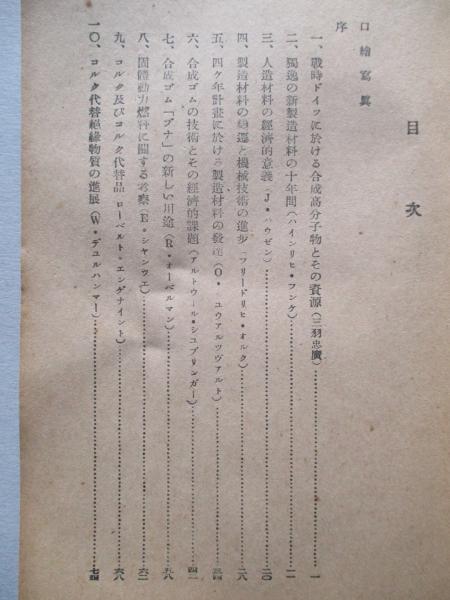 目次
口繪寫眞
序
一、戰時ドイツに於ける合成高分子物とその資源(三羽忠廣)…一
二、獨逸の新製造材料の十年間(ハインリヒ・フンケ)…二一
三、人造材料の經濟的意義(J・ハウゼン)…二〇
四、製造材料の變遷と機械技術の進步(フリードリヒ・オルク)…二八
五、四ケ年計畫に於ける製造材料の發達(O・ユウアルツヴァルト)…三四
六、合成ゴムの技術とその經濟的課題(アルトウール・シユプリンガー)…四二
七、合成ゴム「ブナ」の新しい用途(R・オーベルマン)…五八
八、固體動力燃料に關する考察(E・シヤンツエ)…六二
九、コルク及びコルク代替品(ローベルト・エンゲナイント)…六八
一〇、コルク代替絕緣物質の進展(W・デユルハンマー)…七四